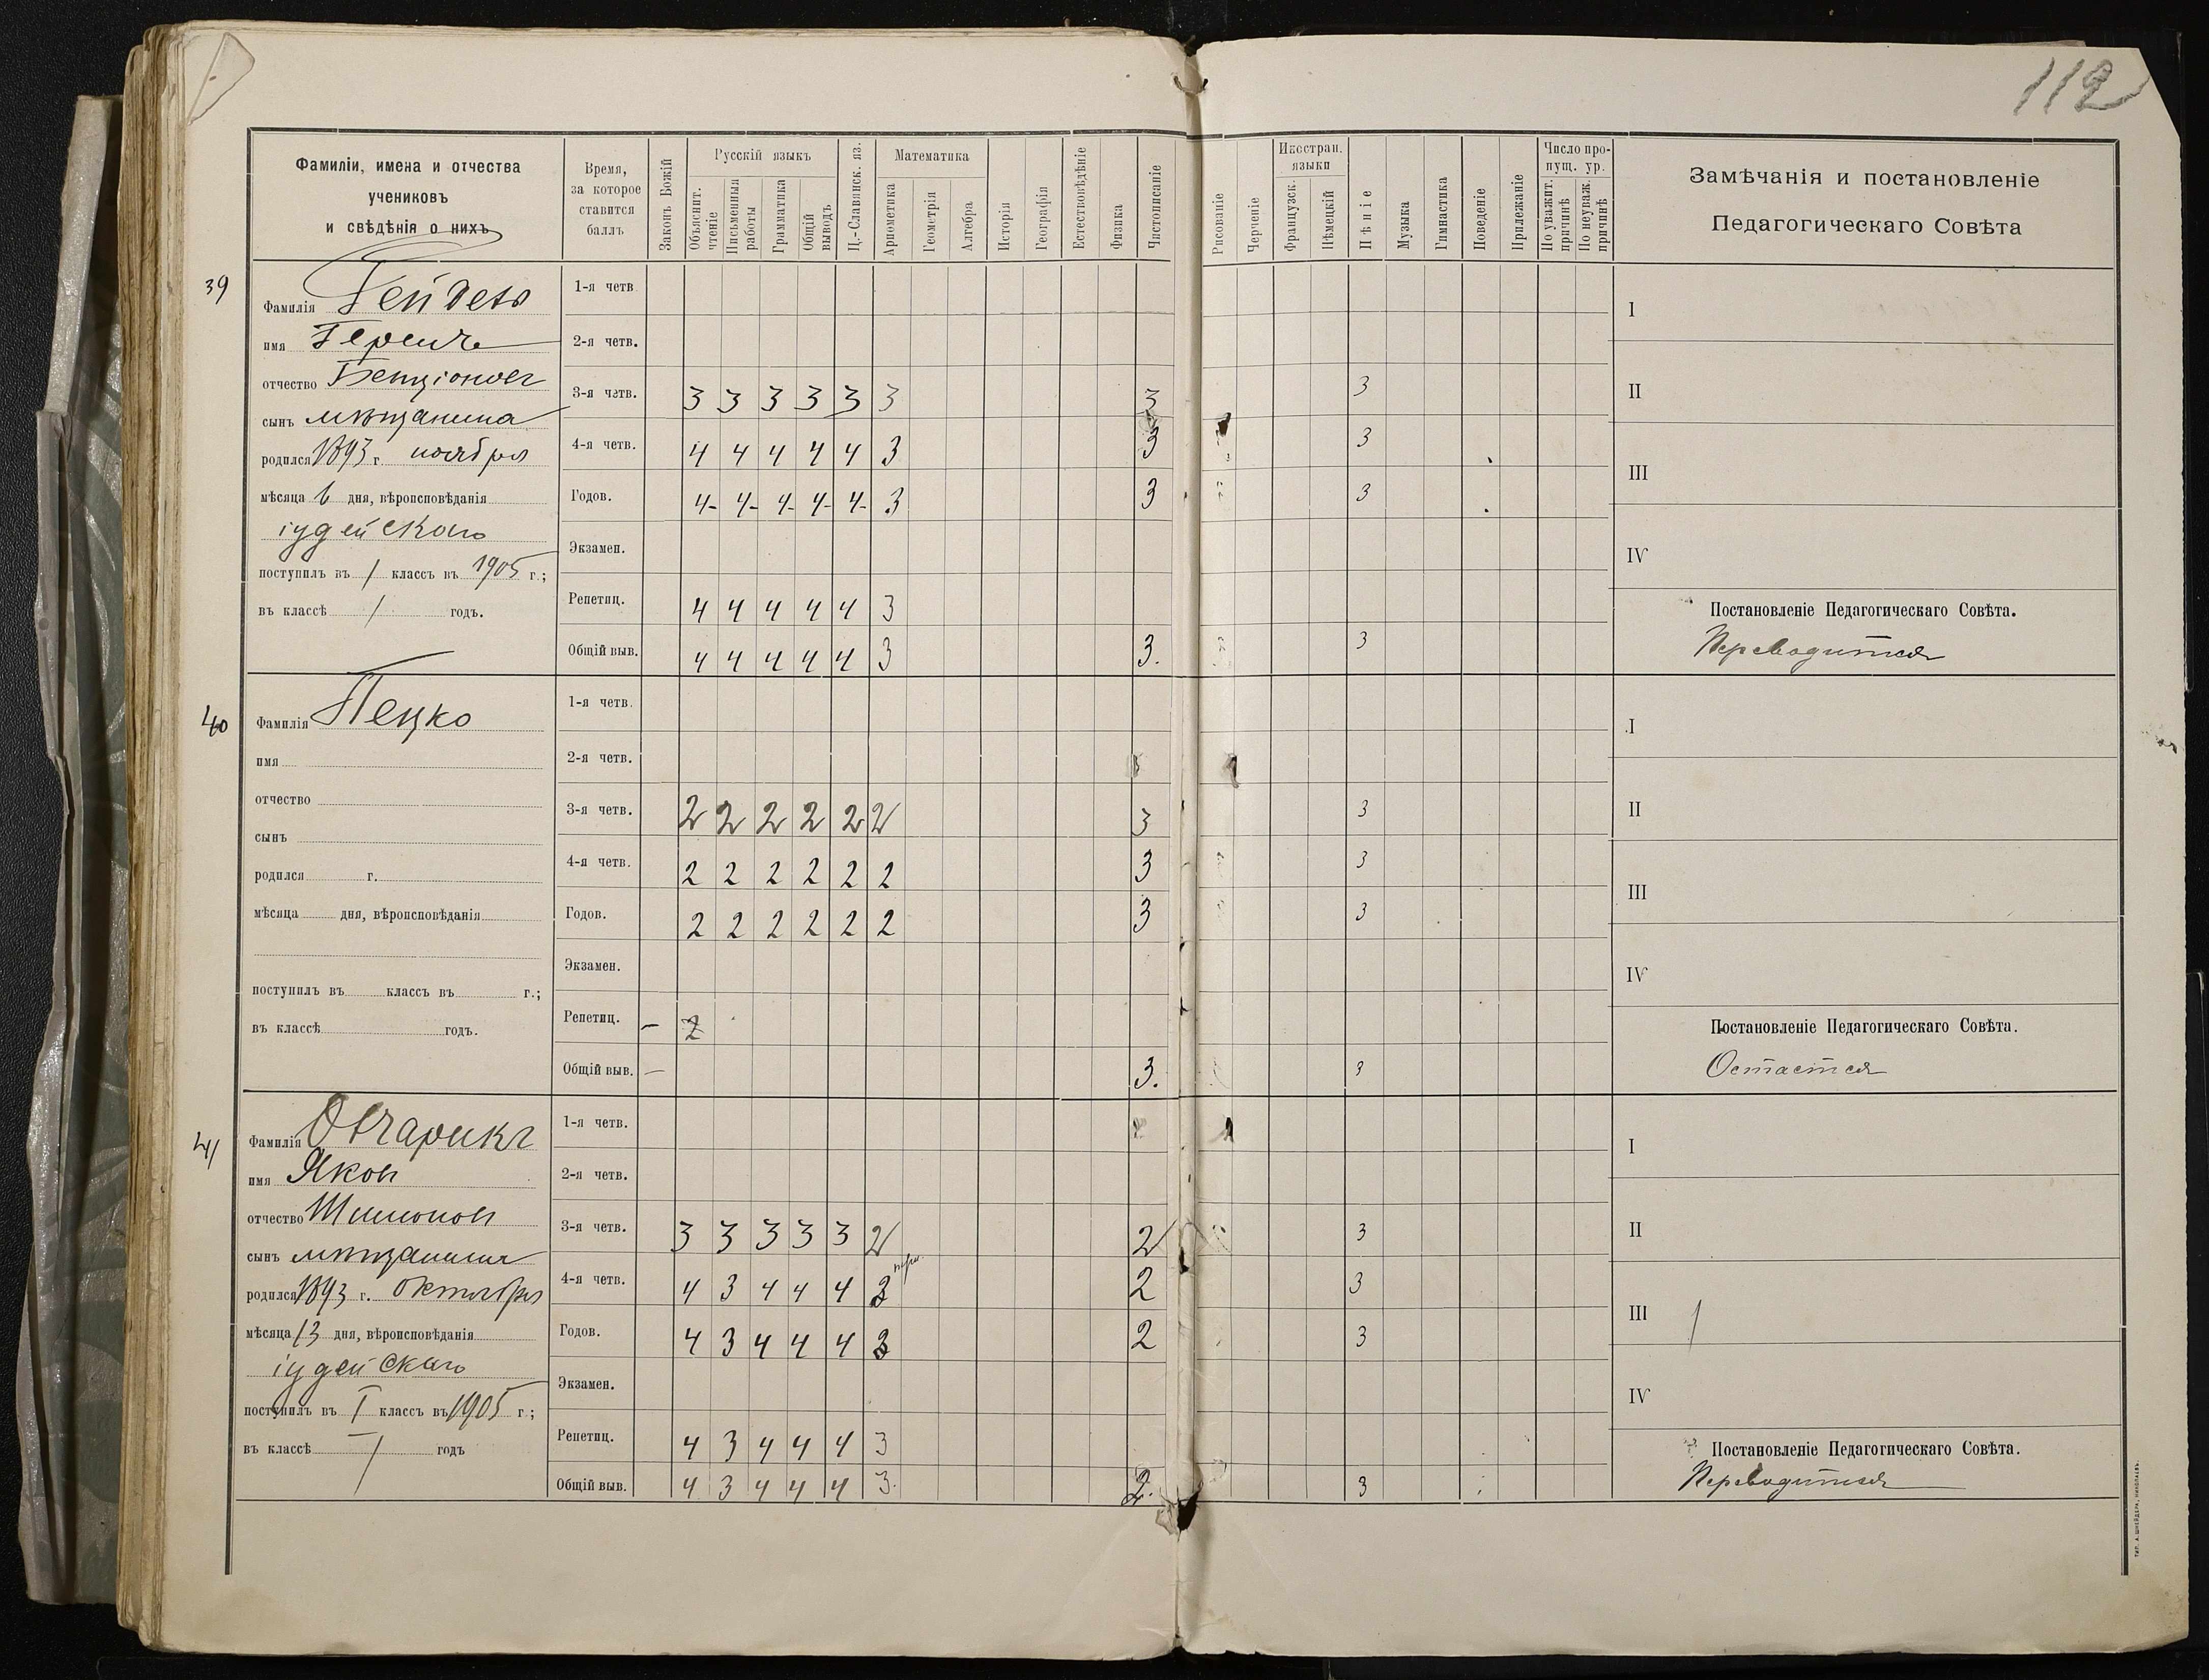 112
Фамиліи, имена и отчества
учениковъ
и свѣдѣнія о нихъ
Время,
за которое
ставится
баллъ
Законъ Божій
Русскій языкъ
Объяснит. чтеніе
Письменныя работы
Грамматика
Общій выводъ
Ц.-Славянск. яз.
Математика
Арифметика
Геометрія
Алгебра
Исторія
Географія
Естествовѣдѣніе
Физика
Чистописаніе
Рисованіе
Черченіе
Иностран. языки
Французск.
Нѣмецкій
Пѣніе
Музыка
Гимнастика
Поведеніе
Прилежаніе
Число пропущ. ур.
По уважит. причинѣ
По неуваж. причинѣ
Замѣчанія и постановленіе
Педагогическаго Совѣта
39
Фамилія
имя
отчество Бенціоновъ
сынъ мѣщанина
родился 1893 г. ноября
мѣсяца 6 дня, вѣроисповѣданія
іудейскаго
поступилъ въ 1 классъ въ 1905 г.;
въ классѣ 1 годъ.
1-я четв.
2-я четв.
3-я четв. 3 3 3 3 3 3 3 3
4-я четв. 4 4 4 4 4 3 3 3
Годов. 4- 4- 4- 4- 4- 3 3 3
Экзамен.
Репетиц. 4 4 4 4 4 3
Общій выв. 4 4 4 4 4 3 3. 3
I
II
III
IV
Постановленіе Педагогическаго Совѣта.
Переводится
40
Фамилія Пецко
имя
отчество
сынъ
родился г.
мѣсяца дня, вѣроисповѣданія
поступилъ въ классъ въ г.;
въ классѣ годъ.
1-я четв.
2-я четв.
3-я четв. 2 2 2 2 2 2 3 3
4-я четв. 2 2 2 2 2 2 3 3
Годов. 2 2 2 2 2 2 3 3
Экзамен.
Репетиц. — 2
Общій выв. — 3. 3
I
II
III
IV
Постановленіе Педагогическаго Совѣта.
Остается
41
Фамилія Овчарикъ
имя Яковъ
отчество Шимоновъ
сынъ мѣщанина
родился 1893 г. октября
мѣсяца 13 дня, вѣроисповѣданія
іудейскаго
поступилъ въ I классъ въ 1905 г.;
въ классѣ 1 годъ
1-я четв.
2-я четв.
3-я четв. 3 3 3 3 3 2 2 3
4-я четв. 4 3 4 4 4 3 2 3
Годов. 4 3 4 4 4 3 2 3
Экзамен.
Репетиц. 4 3 4 4 4 3
Общій выв. 4 3 4 4 4 3. 2. 3
I
II
III
IV
Постановленіе Педагогическаго Совѣта.
Переводится
ТИП. А. ШНЕЙДЕРА, НИКОЛАЕВЪ.